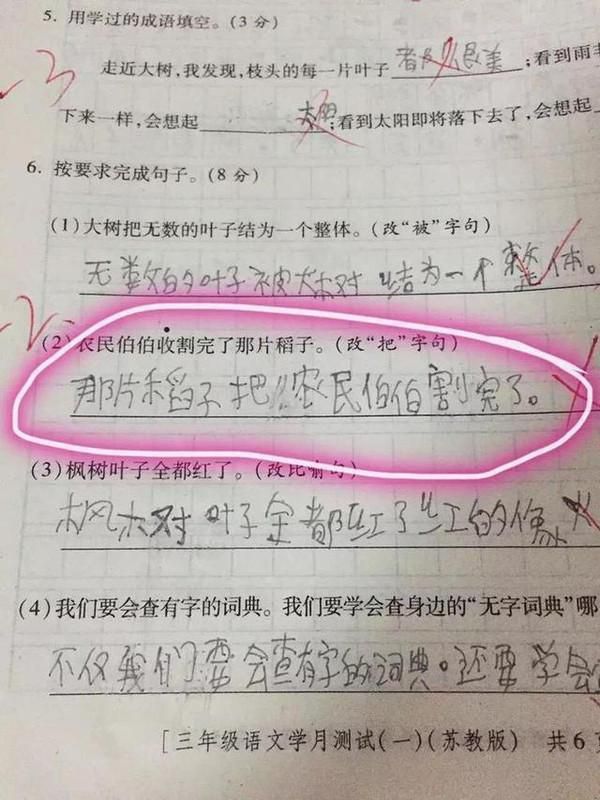 5. 用学过的成语填空。(3 分)
-3
走近大树,我发现,枝头的每一片叶子 都很美 ;看到雨
下来一样,会想起 太阳 ;看到太阳即将落下去了,会想起
6. 按要求完成句子。(8 分)
(1)大树把无数的叶子结为一个整体。(改“被”字句)
无数的叶子被大树结为一个整体。
-2
(2)农民伯伯收割完了那片稻子。(改“把”字句)
那片稻子把农民伯伯割完了。
(3)枫树叶子全都红了。(改比喻句)
枫树叶子全都红了红的像
(4)我们要会查有字的词典。我们要学会查身边的“无字词典”哪
不仅我们要会查有字的词典。还要学会
[三年级语文学月测试(一)(苏教版) 共6